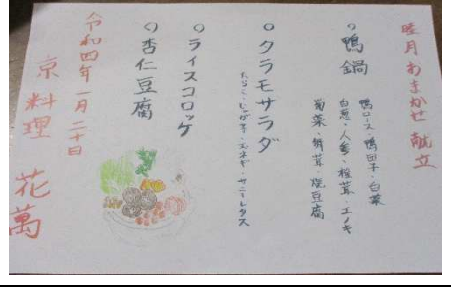 睦月おまかせ 献立
○鴨鍋
鴨ロース・鴨団子・白菜
白葱・人参・椎茸・エノキ
菊菜・舞茸・焼豆腐
○タラモサラダ
たらこ・じゃが芋・玉ネギ・サニーレタス
○ライスコロッケ
○杏仁豆腐
令和四年 一月二十日
京料理 花萬